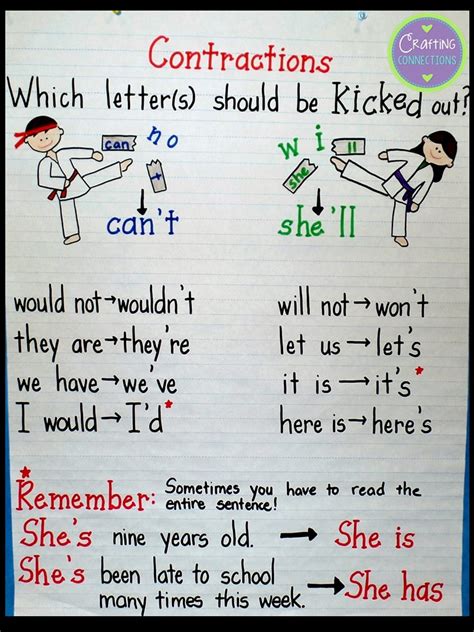 Crafting
CONNECTIONS
Contractions
Which letter(s) should be Kicked out?
can no t
w i ll she
can't
she'll
would not→wouldn't
will not→won't
they are→they're
let us→let's
we have→we've
it is→it's*
I would→I'd*
here is→here's
*
Remember: Sometimes you have to read the
entire sentence!
She's nine years old. → She is
She's been late to school → She has
many times this week.